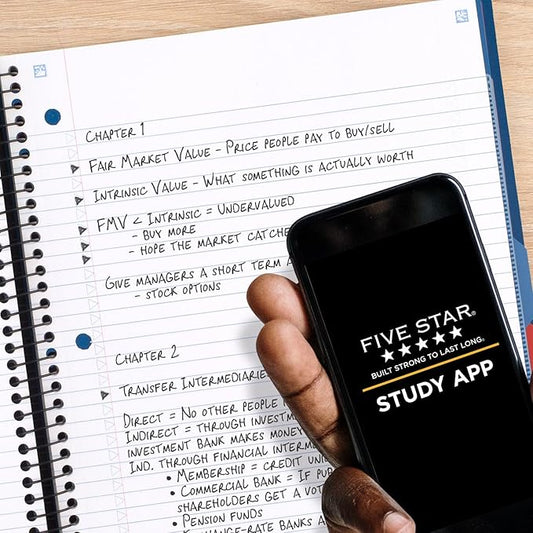 CHAPTER 1
FAIR MARKET VALUE - PRICE PEOPLE PAY TO BUY/SELL
INTRINSIC VALUE - WHAT SOMETHING IS ACTUALLY WORTH
FMV < INTRINSIC = UNDERVALUED
- BUY MORE
- HOPE THE MARKET CATCHE
GIVE MANAGERS A SHORT TERM
- STOCK OPTIONS
CHAPTER 2
TRANSFER INTERMEDIARIE
DIRECT = NO OTHER PEOPLE
INDIRECT = THROUGH INVESTM
INVESTMENT BANK MAKES MONEY
IND. THROUGH FINANCIAL INTERM
• MEMBERSHIP = CREDIT UNI
• COMMERCIAL BANK = IF PUB
SHAREHOLDERS GET A VOT
• PENSION FUNDS
-RATE BANKS A
FIVE STAR®
★★★★★
BUILT STRONG TO LAST LONG.
STUDY APP